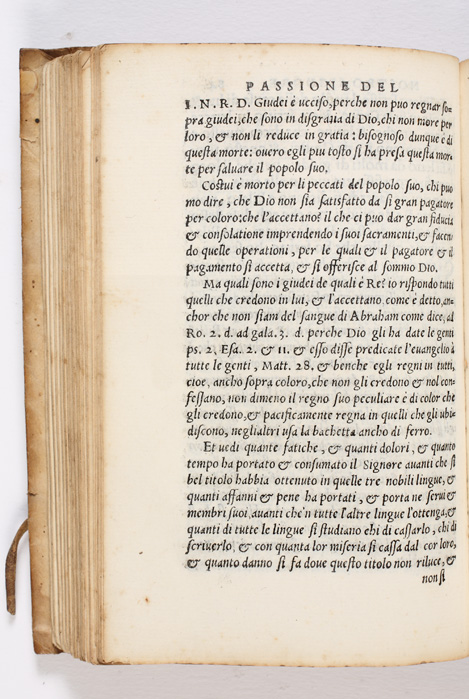 PASSIONE DEL
I. N. R. D. Giudei è ucciso, perche non puo regnar so-
pra giudei, che sono in disgratia di Dio, chi non more per
loro, & non li reduce in gratia: bisognoso dunque è di
questa morte: overo egli piu tosto si ha presa questa mor-
te per saluare il popolo suo.
Costui è morto per li peccati del popolo suo, chi puo
mo dire, che Dio non sia satisfatto da si gran pagatore
per coloro: che l'accettano? il che ci puo dar gran fiducia
& consolatione imprendendo i suoi sacramenti, & facen
do quelle operationi, per le quali & il pagatore & il
pagamento si accetta, & si offerisce al sommo Dio.
Ma quali sono i giudei de quali è Re? io rispondo tutti
quelli che credono in lui, & l'accettano come è detto, an-
chor che non siam del sangue di Abraham come dice, al
Ro. 2. d. ad gala. 3. d. perche Dio gli ha date le genti
ps. 2, Esa. 2. & 11. & esso disse predicate l'euangelio à
tutte le genti, Matt. 28. & benche egli regni in tutti,
cioe, ancho sopra coloro, che non gli credono & nol con-
fessano, non dimeno il regno suo peculiare è di color che
gli credono, & pacificamente regna in quelli che gli ubi-
discono, negli altri usa la bachetta ancho di ferro.
Et uedi quante fatiche, & quanti dolori, & quanto
tempo ha portato & consumato il Signore auanti che sì
bel titolo habbia ottenuto in quelle tre nobili lingue, &
quanti affanni & pene ha portati, & porta ne serui &
membri suoi, auanti che'n tutte l'altre lingue l'ottenga, &
quanti di tutte le lingue si studiano chi di cassarlo, chi di
scriuerlo, & con quanta lor miseria si cassa dal cor loro,
& quanto danno si fa doue questo titolo non riluce, &
non si